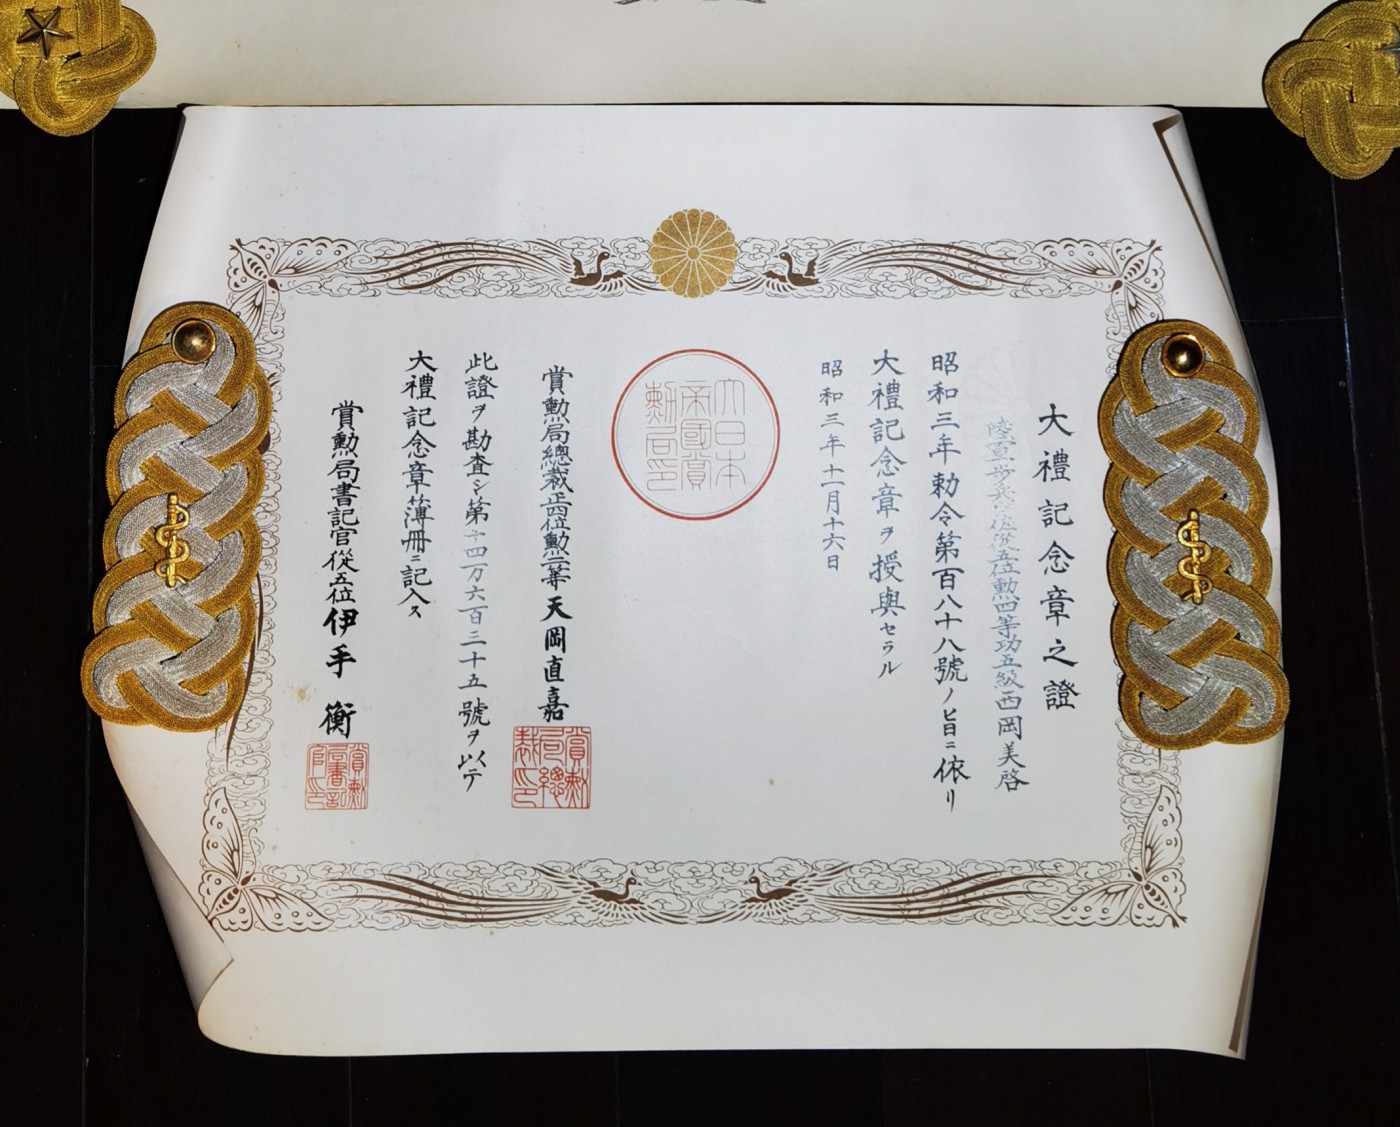 大禮記念章之證
陸軍步兵大佐從五位勲四等功五級西岡美啓
昭和三年勅令第百八十八號ノ旨ニ依リ
大禮記念章ヲ授與セラル
昭和三年十一月十六日
大日本
帝國賞
勲局印
賞勲局總裁正四位勲二等天岡直嘉
此證ヲ勘査シ第十四万六百三十五號ヲ以テ
大禮記念章簿冊ニ記入ス
賞勲局書記官從五位伊手衡